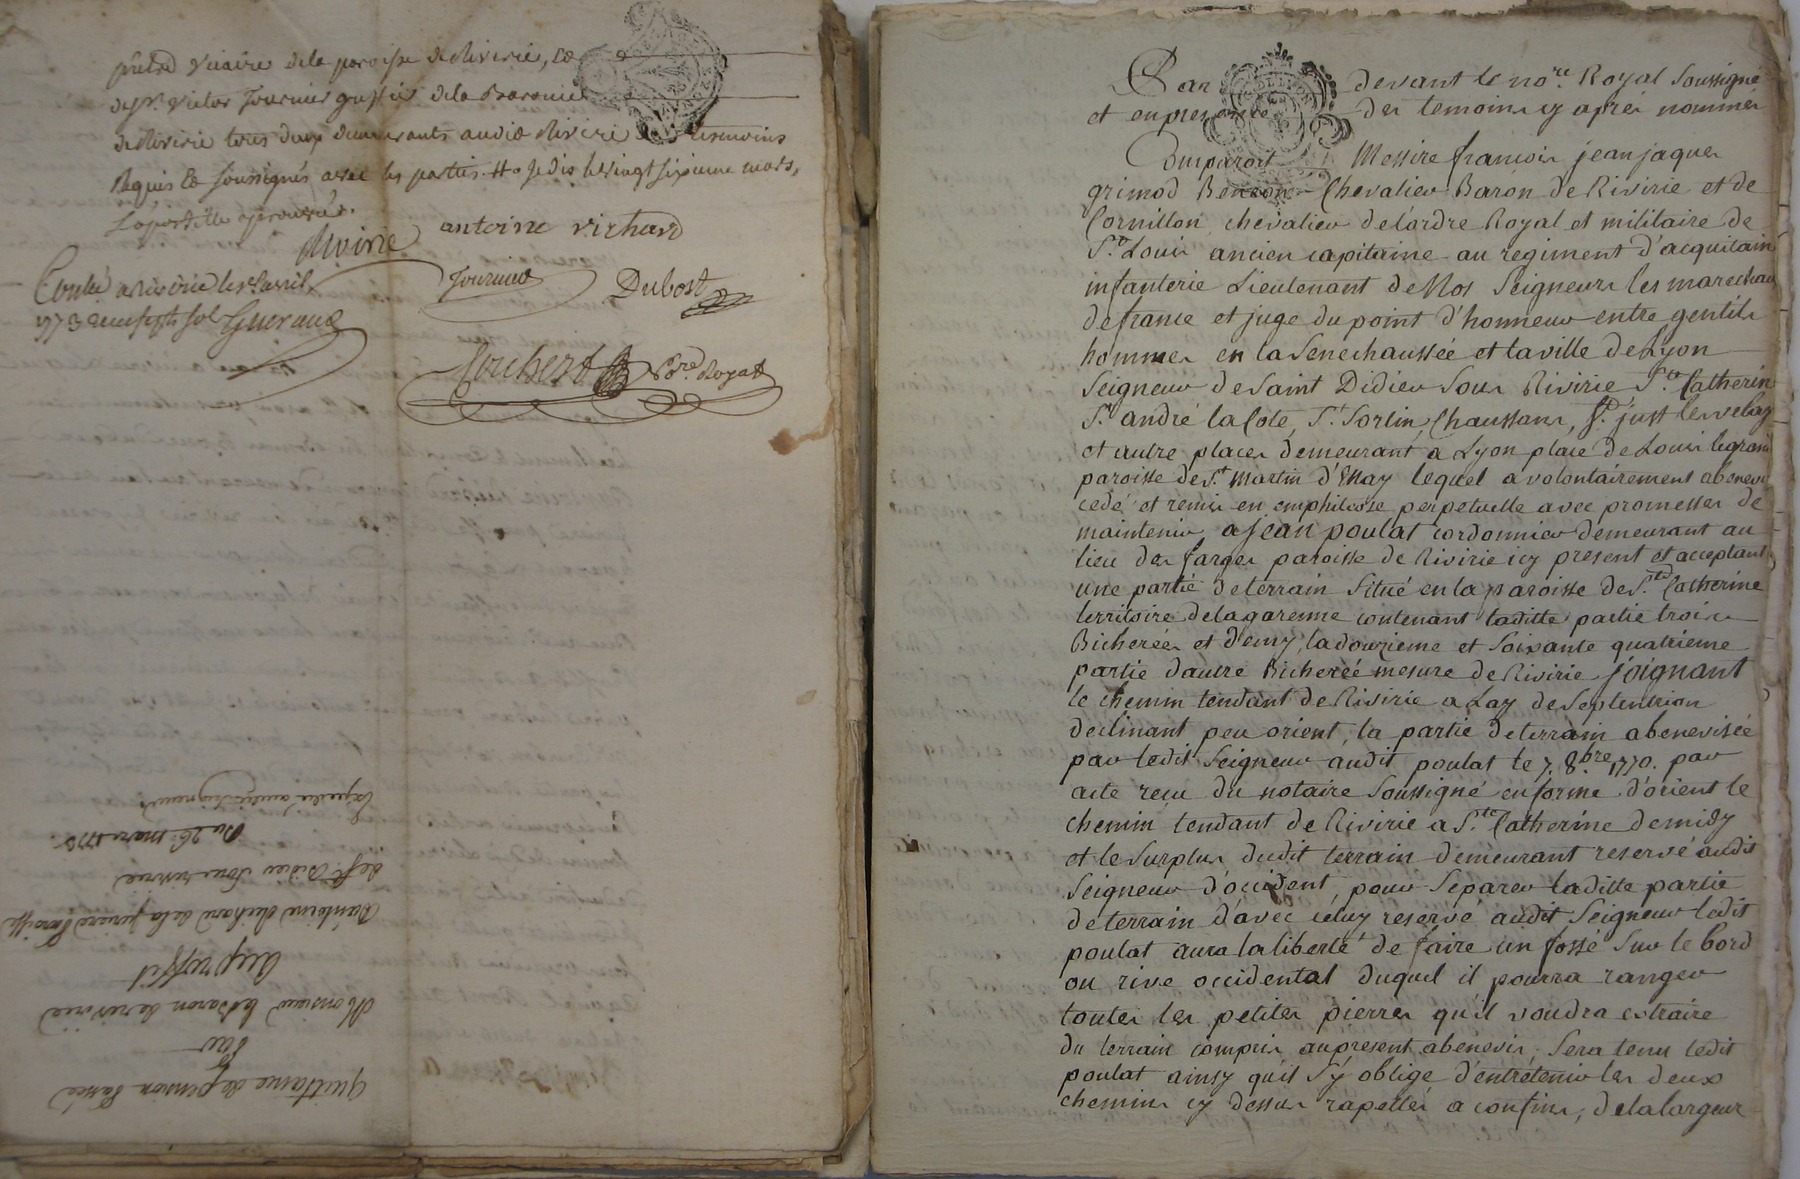 vicaire dela paroisse de Riverie, et
de Sr. victor fournier greffier dela Baronnie
de Riverie tous deux demeurants audit Riverie temoins
requis et soussignés avec les parties. Je dis le vingt sixieme mars,
Rivirie antoine richard
fournier Dubost
Controlé a Riverie le avril
1773 Gueraud
Royal
quittance de pension passée
par
Monsieur le Baron de rivirie
au proffit
D'antoine Richard de la paroisse
de St. Didier sous rivirie
Du 26. mars 1773.
Par devant le nore. Royal soussigné
et en presence des temoins cy aprés nommés
Comparoit Messire francois jean jaques
grimod Beneon Chevalier Baron de Rivirie et de
Cornillon, chevalier de l'ordre Royal et militaire de
St. Louis ancien capitaine au regiment d'acquitain
infanterie Lieutenant de Nos Seigneurs les marechaux
de france et juge du point d'honneur entre gentils
hommes en la Senechaussée et la ville de Lyon
Seigneur de Saint Didier sous Rivirie Ste. Catherine
St. andré la Cote, St. Sorlin, Chaussans, St. just les velay
et autre places demeurant a Lyon place de Louis le grand
paroisse de St. Martin d'Enay lequel a volontairement abenevisé
cedé et remis en emphiteose perpetuelle avec promesses de
maintenir a jean poulat cordonnier demeurant au
lieu des farges paroisse de Rivirie icy present et acceptant
une partie de terrain situé en la paroisse de Ste. Catherine
territoire de la garenne contenant laditte partie trois
Bicherées et demy, la douzieme et soixante quatrieme
partie d'autre Bicherée mesure de Rivirie joignant
le chemin tendant de Rivirie a Lay de Septentrion
declinant peu orient, la partie de terrain abenevisée
par ledit Seigneur audit poulat le 7. 8bre. 1770. par
acte recu du notaire soussigné en forme d'orient le
chemin tendant de Rivirie a Ste. Catherine de midy
et le surplus dudit terrain demeurant reservé audit
Seigneur d'occident, pour separer laditte partie
de terrain d'avec celuy reservé audit Seigneur ledit
poulat aura la liberté de faire un fossé sur le bord
ou rive occidental duquel il pourra ranger
toutes les petites pierres qu'il voudra extraire
du terrain compris au present abenevis, sera tenu ledit
poulat ainsy qu'il s'y oblige d'entretenir les deux
chemins cy dessus rapellés a confins, de la largeur